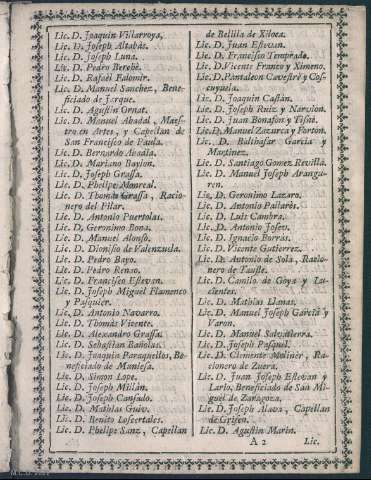 Lic. D. Joaquin Villarroya,
Lic. D. Joseph Altabàs.
Lic. D. Joseph Luna.
Lic. D. Pedro Berebè.
Lic. D. Rafaèl Falomir.
Lic. D. Manuel Sanchez, Bene-
ficiado de Jarque.
Lic. D. Agustin Ornat.
Lic. D. Manuel Abadal, Maes-
tro en Artes, y Capellan de
San Francisco de Paula.
Lic. D. Bernardo Abadìa.
Lic. D. Mariano Baylon.
Lic. D. Joseph Grassa.
Lic. D. Phelipe Monreal.
Lic. D. Thomàs Grassa, Racio-
nero del Pilar.
Lic. D. Antonio Puertolas.
Lic. D. Geronimo Bona.
Lic. D. Manuel Alonso.
Lic. D. Dionisio de Valenzuela.
Lic. D. Pedro Bayo.
Lic. D. Pedro Renao.
Lic. D. Francisco Estevan.
Lic. D. Joseph Miguèl Flamenco
y Pasquier.
Lic. D. Antonio Navarro.
Lic. D. Thomàs Vicente.
Lic. D. Alexandro Grassa.
Lic. D. Sebastian Bañolas.
Lic. D. Joaquin Paraquellos, Be-
neficiado de Maniesa.
Lic. D. Simon Lope.
Lic. D. Joseph Millàn.
Lic. D. Joseph Cansado.
Lic. D. Mathias Guiv.
Lic. D. Benito Loscertales.
Lic. D. Phelipe Sanz, Capellan
de Bellila de Xiloca.
Lic. D. Juan Estevan.
Lic. D. Francisco Temprado.
Lic. D. Vicente Franco y Ximeno.
Lic. D. Pantaleon Cavestrè y Cos-
cuyuela.
Lic. D. Joaquin Castàn.
Lic. D. Joseph Ruiz y Narvion.
Lic. D. Juan Bonafon y Tisoi.
Lic. D. Manuel Zazurca y Forton.
Lic. D. Balthasar Garcia y
Martinez.
Lic. D. Santiago Gomez Revilla.
Lic. D. Manuel Joseph Arangu-
ren.
Lic. D. Geronimo Lazaro.
Lic. D. Antonio Pallarès.
Lic. D. Luis Cambra.
Lic. D. Antonio Josev.
Lic. D. Ignacio Borràs.
Lic. D. Vicente Gutierrez.
Lic. D. Antonio de Sola, Racio-
nero de Tauste.
Lic. D. Camilo de Goya y Lu-
cientes.
Lic. D. Mathias Llamas.
Lic. D. Manuel Joseph Garcia y
Varon.
Lic. D. Manuel Salvatierra.
Lic. D. Joseph Pasquel.
Lic. D. Clemente Moliner, Ra-
cionero de Zuera.
Lic. D. Juan Joseph Estevan y
Lario, Beneficiado de San Mi-
guel de Zaragoza.
Lic. D. Joseph Alava, Capellan
de Grisen.
Lic. D. Agustin Marin.
A 2 Lic.